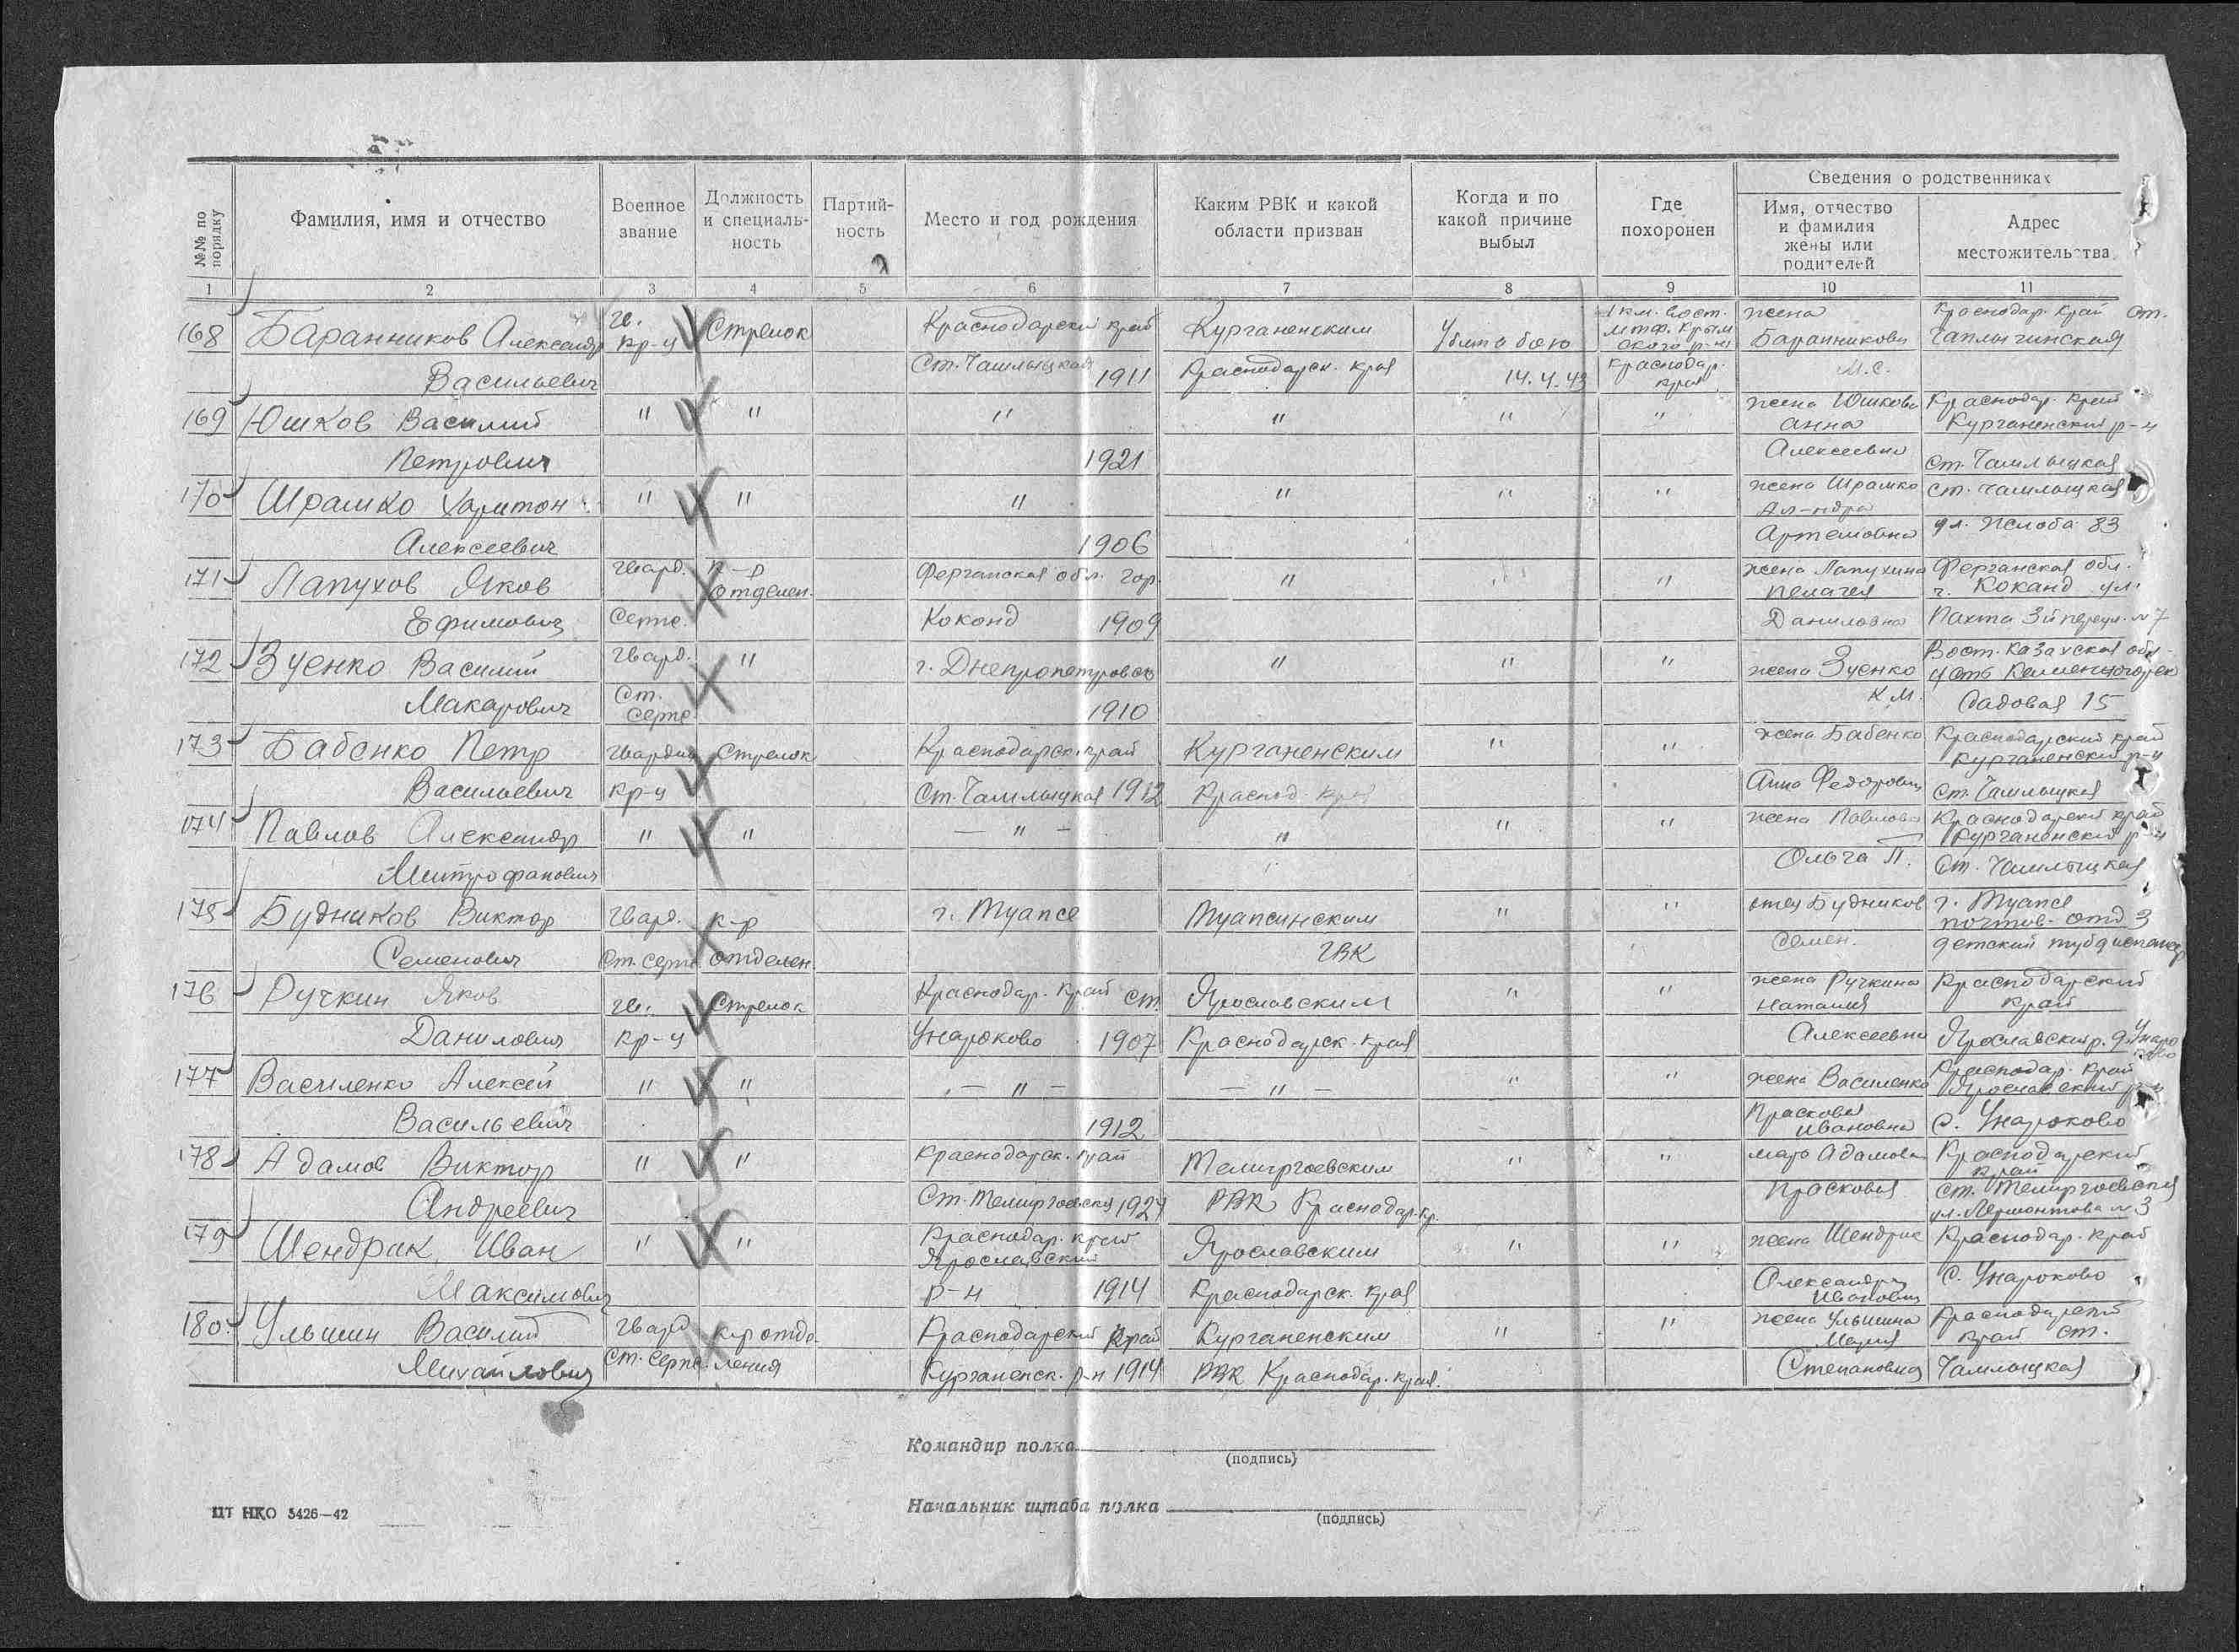 №№ по порядку
Фамилия, имя и отчество
Военное звание
Должность и специальность
Партийность
Место и год рождения
Каким РВК и какой области призван
Когда и по какой причине выбыл
Где похоронен
Сведения о родственниках
Имя, отчество и фамилия жены или родителей
Адрес местожительства
1 2 3 4 5 6 7 8 9 10 11
168 Баранников Александр Гв. Стрелок Краснодарский край Курганенским Убит в бою 1 км. вост. жена Краснодар. край ст.
Васильевич кр-ц ст. Чамлыцкая 1911 Краснодарск. края 14.4.43 Краснодар. края Баранникова М.С. Чаплыгинская
169 Юшков Василий " " " " " " жена Юшкова Краснодар. край
Петрович 1921 Анна Алексеевна Курганенский р-н ст. Чамлыцкая
170 Шрамко Харитон " " " " " " жена Шрамко ст. Чамлыцкая
Алексеевич 1906 Ал-ндра Артемовна ул. Жлоба 83
171 Лапухов Яков Гвард. к-р отделен. Ферганская обл. гор. " " " жена Лапухина Ферганская обл.
Ефимович Серж. Коканд 1909 Пелагея Даниловна г. Коканд ул. Пахта 3й переул. №7
172 Зуенко Василий Гвард. " г. Днепропетровск " " " жена Зуенко Вост. Казахская обл.
Макарович Ст. Серж 1910 К.М. Усть Каменногорск Садовая 15
173 Бабенко Петр Гвардии Стрелок Краснодарск. край Курганенским " " жена Бабенко Краснодарский край
Васильевич кр-ц ст. Чамлыцкая 1912 Краснод. края Анна Федоровна Курганенский р-н ст. Чамлыцкая
174 Павлов Александр " " — " — " " " жена Павлова Краснодарский край
Митрофанович Ольга П. Курганенский р-н ст. Чамлыцкая
175 Будников Виктор Гвард. к-р г. Туапсе Туапсинским " " отец Будников г. Туапсе
Семенович Ст. серж. отделен. ГВК Семен. почтов. отд 3 детский тубдиспансер
176 Ручкин Яков Гв. Стрелок Краснодар. край ст. Ярославским " " жена Ручкина Краснодарский
Данилович кр-ц Унароково 1907 Краснодарск. края Наталия Алексеевна край Ярославский р.
177 Василенко Алексей " " — " — — " — " " жена Василенко Краснодар. край
Васильевич 1912 Прасковья Ивановна Ярославский р-н с. Унароково
178 Адамов Виктор " " Краснодарск. край Темиргоевским " " мать Адамова Краснодарский
Андреевич ст. Темиргоевская 1924 РВК Краснодар. кр. Прасковья край ст. Темиргоевская ул. Лермонтова №3
179 Шендрик Иван " " Краснодар. край Ярославским " " жена Шендрик Краснодар. край
Максимович Ярославский р-н 1914 Краснодарск. края Александра Ивановна с. Унароково
180 Ульшин Василий Гвард к-р отде- Краснодарский край Курганенским " " жена Ульшина Краснодарский
Михайлович ст. серж. ления Курганенск. р-н 1914 РВК Краснодар. края. Мария Степановна край ст. Чамлыцкая
Командир полка
(подпись)
Начальник штаба полка
(подпись)
ЦТ НКО 5426—42